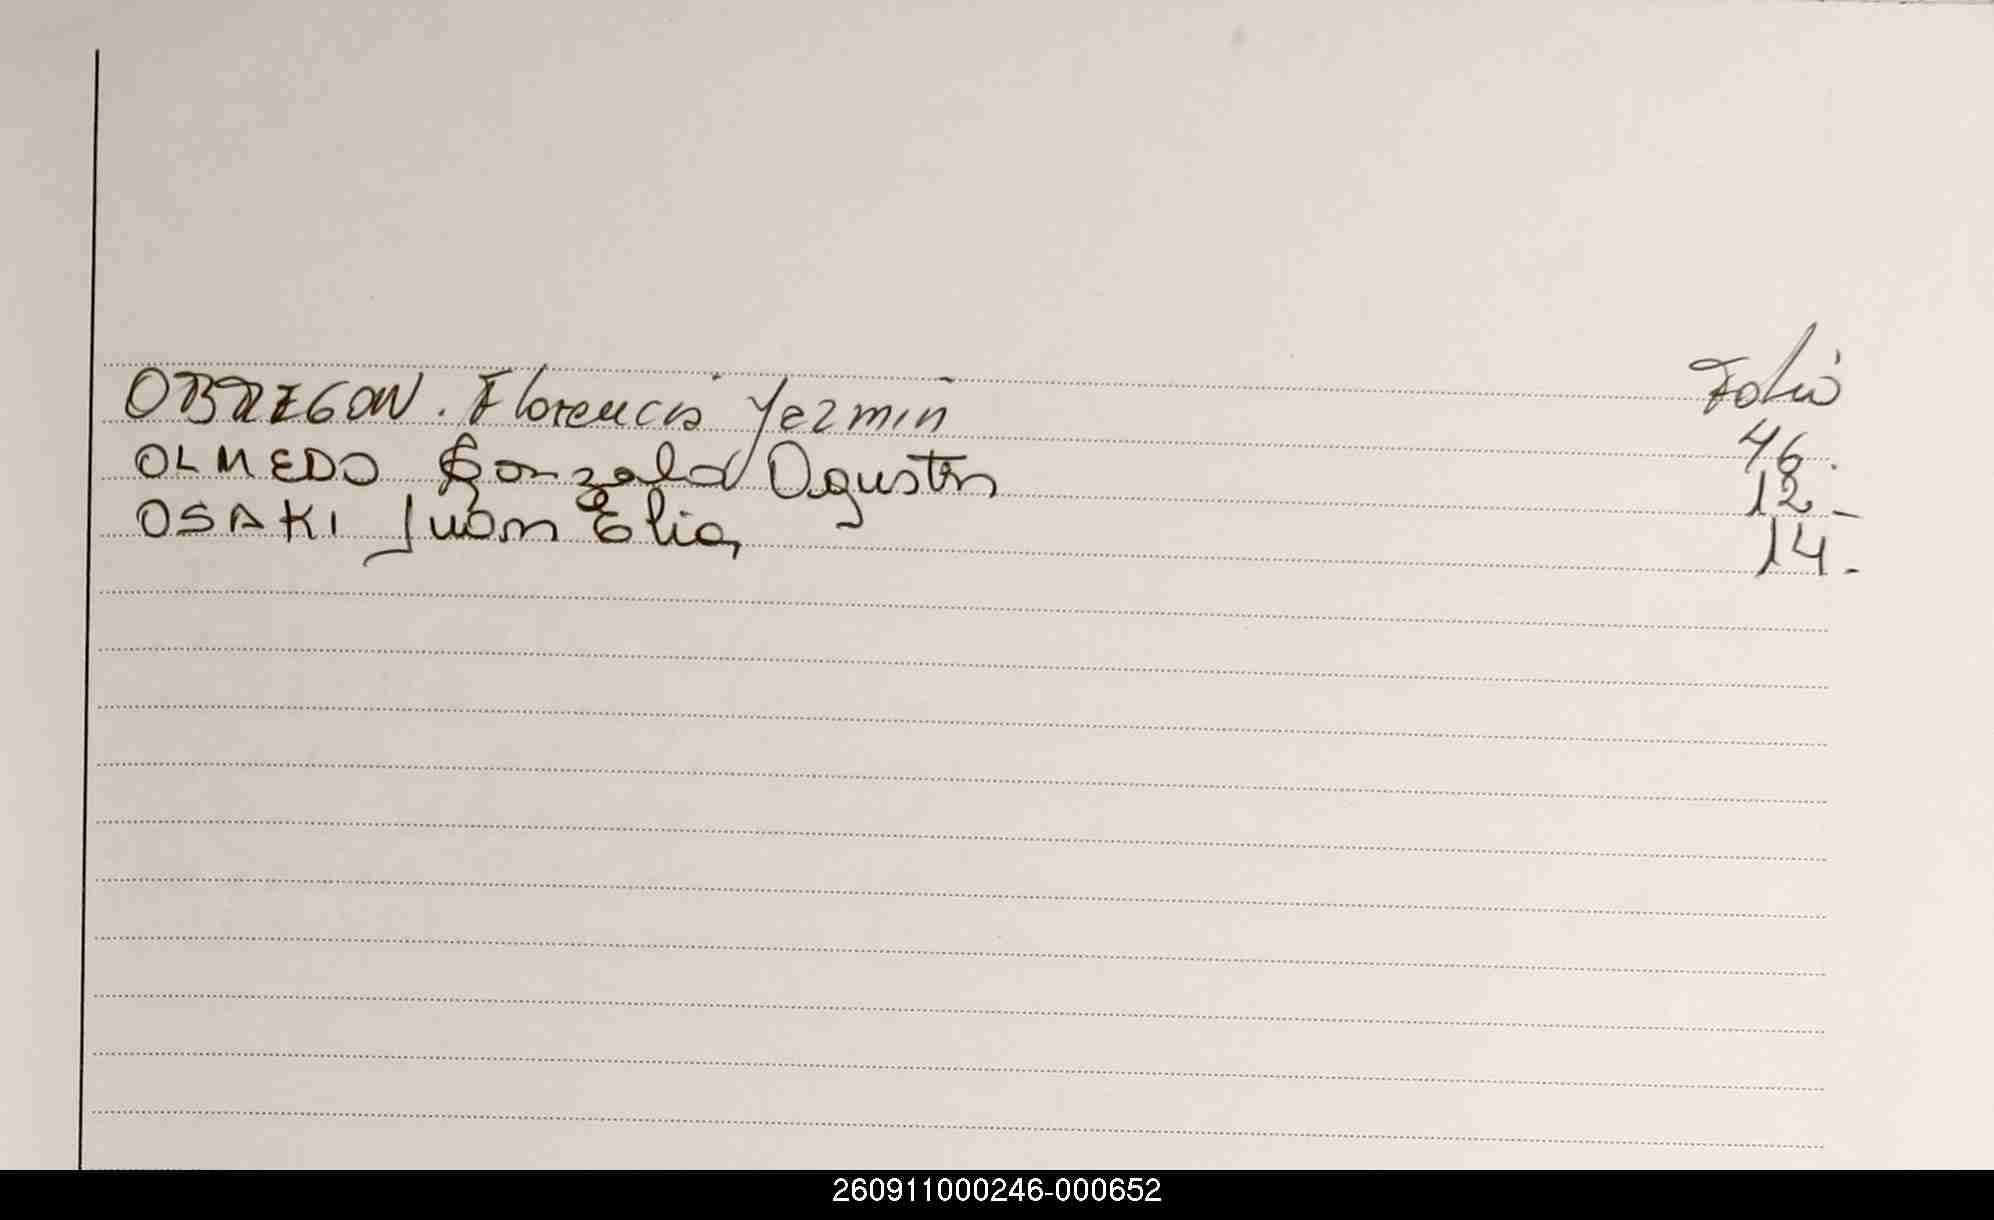 Folio
OBREGON. Florencia Yezmin 46.
OLMEDO Gonzalo Agustin 12.-
OSAKI Juan Elia, 14.-
260911000246-000652